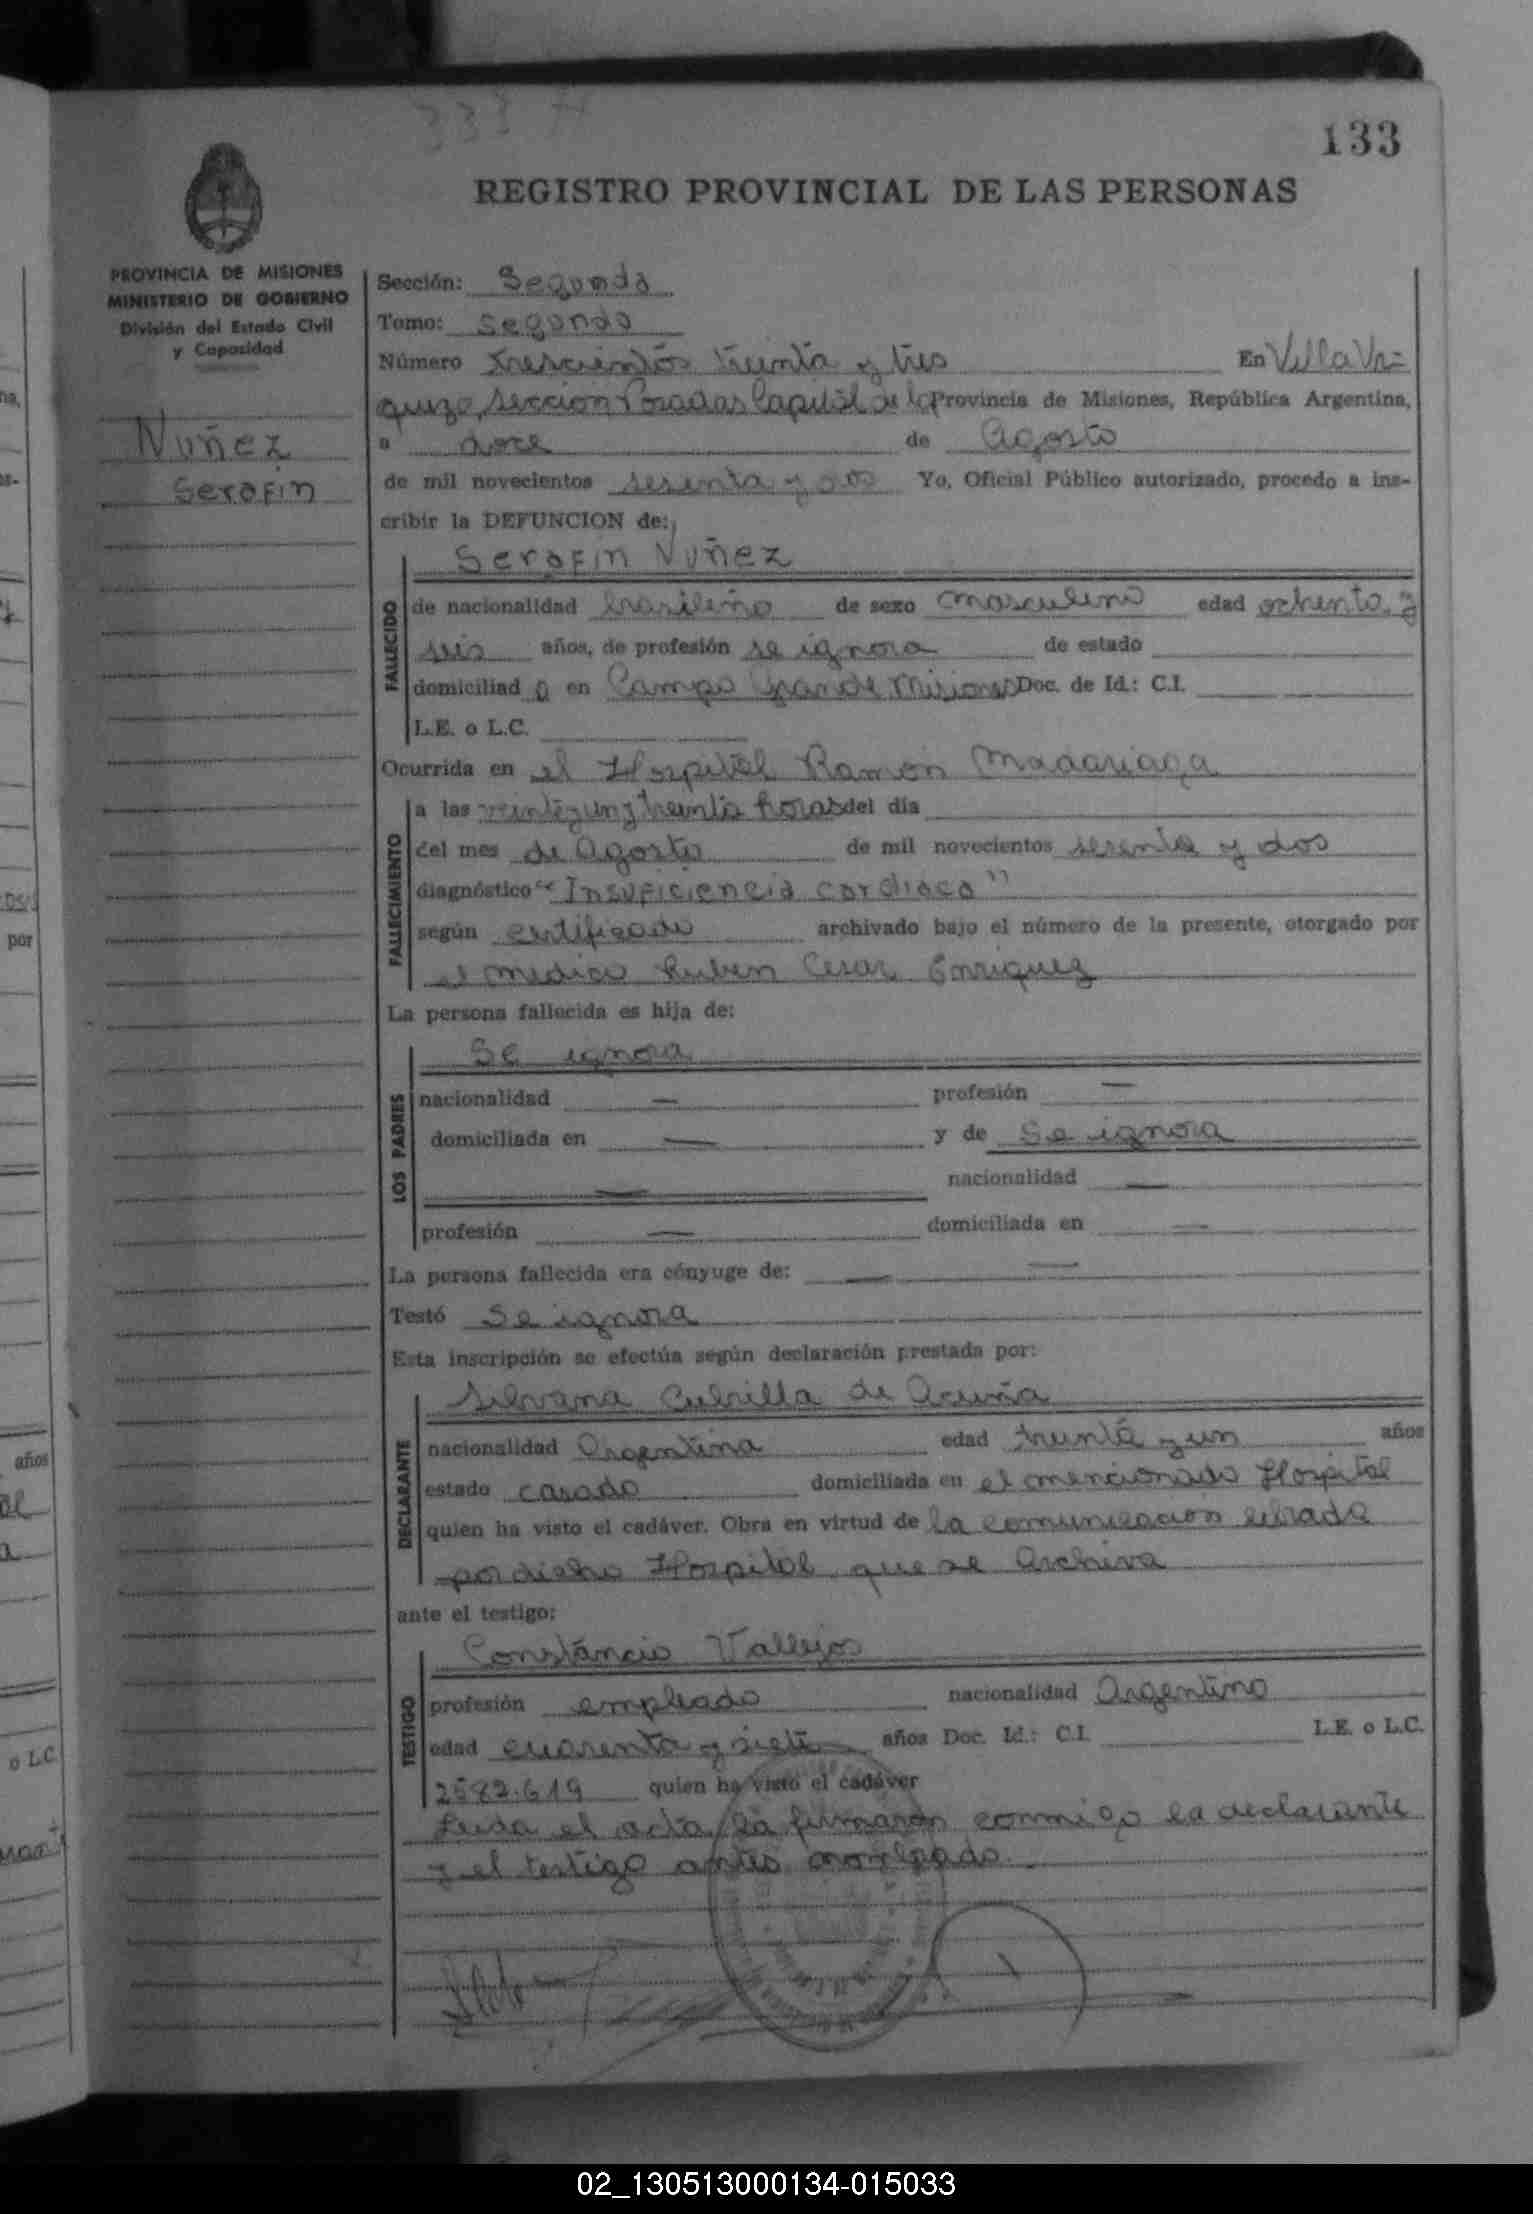 333 A
133
REGISTRO PROVINCIAL DE LAS PERSONAS
PROVINCIA DE MISIONES
MINISTERIO DE GOBIERNO
División del Estado Civil
y Capacidad
Nuñez
Serafin
Sección: Segunda
Tomo: segundo
Número trescientos treinta y tres En Villa Ur=
quiza, sección Posadas Capital de la Provincia de Misiones, República Argentina,
a doce de Agosto
de mil novecientos sesenta y dos Yo, Oficial Público autorizado, procedo a ins-
cribir la DEFUNCION de:
Serafin Nuñez
FALLECIDO
de nacionalidad brasileño de sexo masculino edad ochenta y
seis años, de profesión se ignora de estado
domiciliad o en Campo Grande Misiones Doc. de Id.: C.I.
L.E. o L.C.
Ocurrida en el Hospital Ramon Madariaga
FALLECIMIENTO
a las veinte y un y treinta horas del día
del mes de Agosto de mil novecientos sesenta y dos
diagnóstico "Insuficiencia cardiaca"
según certificado archivado bajo el número de la presente, otorgado por
el medico Ruben Cesar Enriquez
La persona fallecida es hija de:
LOS PADRES
Se ignora
nacionalidad — profesión —
domiciliada en — y de Se ignora
— nacionalidad —
profesión — domiciliada en —
La persona fallecida era cónyuge de: — —
Testó Se ignora
Esta inscripción se efectúa según declaración prestada por:
DECLARANTE
Silvana Cubilla de Acuña
nacionalidad Argentina edad treinta y un años
estado casada domiciliada en el mencionado Hospital
quien ha visto el cadáver. Obra en virtud de la comunicacion librada
por dicho Hospital que se archiva
ante el testigo:
TESTIGO
Constancio Vallejos
profesión empleado nacionalidad Argentino
edad cuarenta y siete años Doc. Id.: C.I. L.E. o L.C.
2582.619 quien ha visto el cadáver
Leida el acta, la firmaron conmigo la declarante
y el testigo antes nombrado.
por
años
o L.C.
02_130513000134-015033